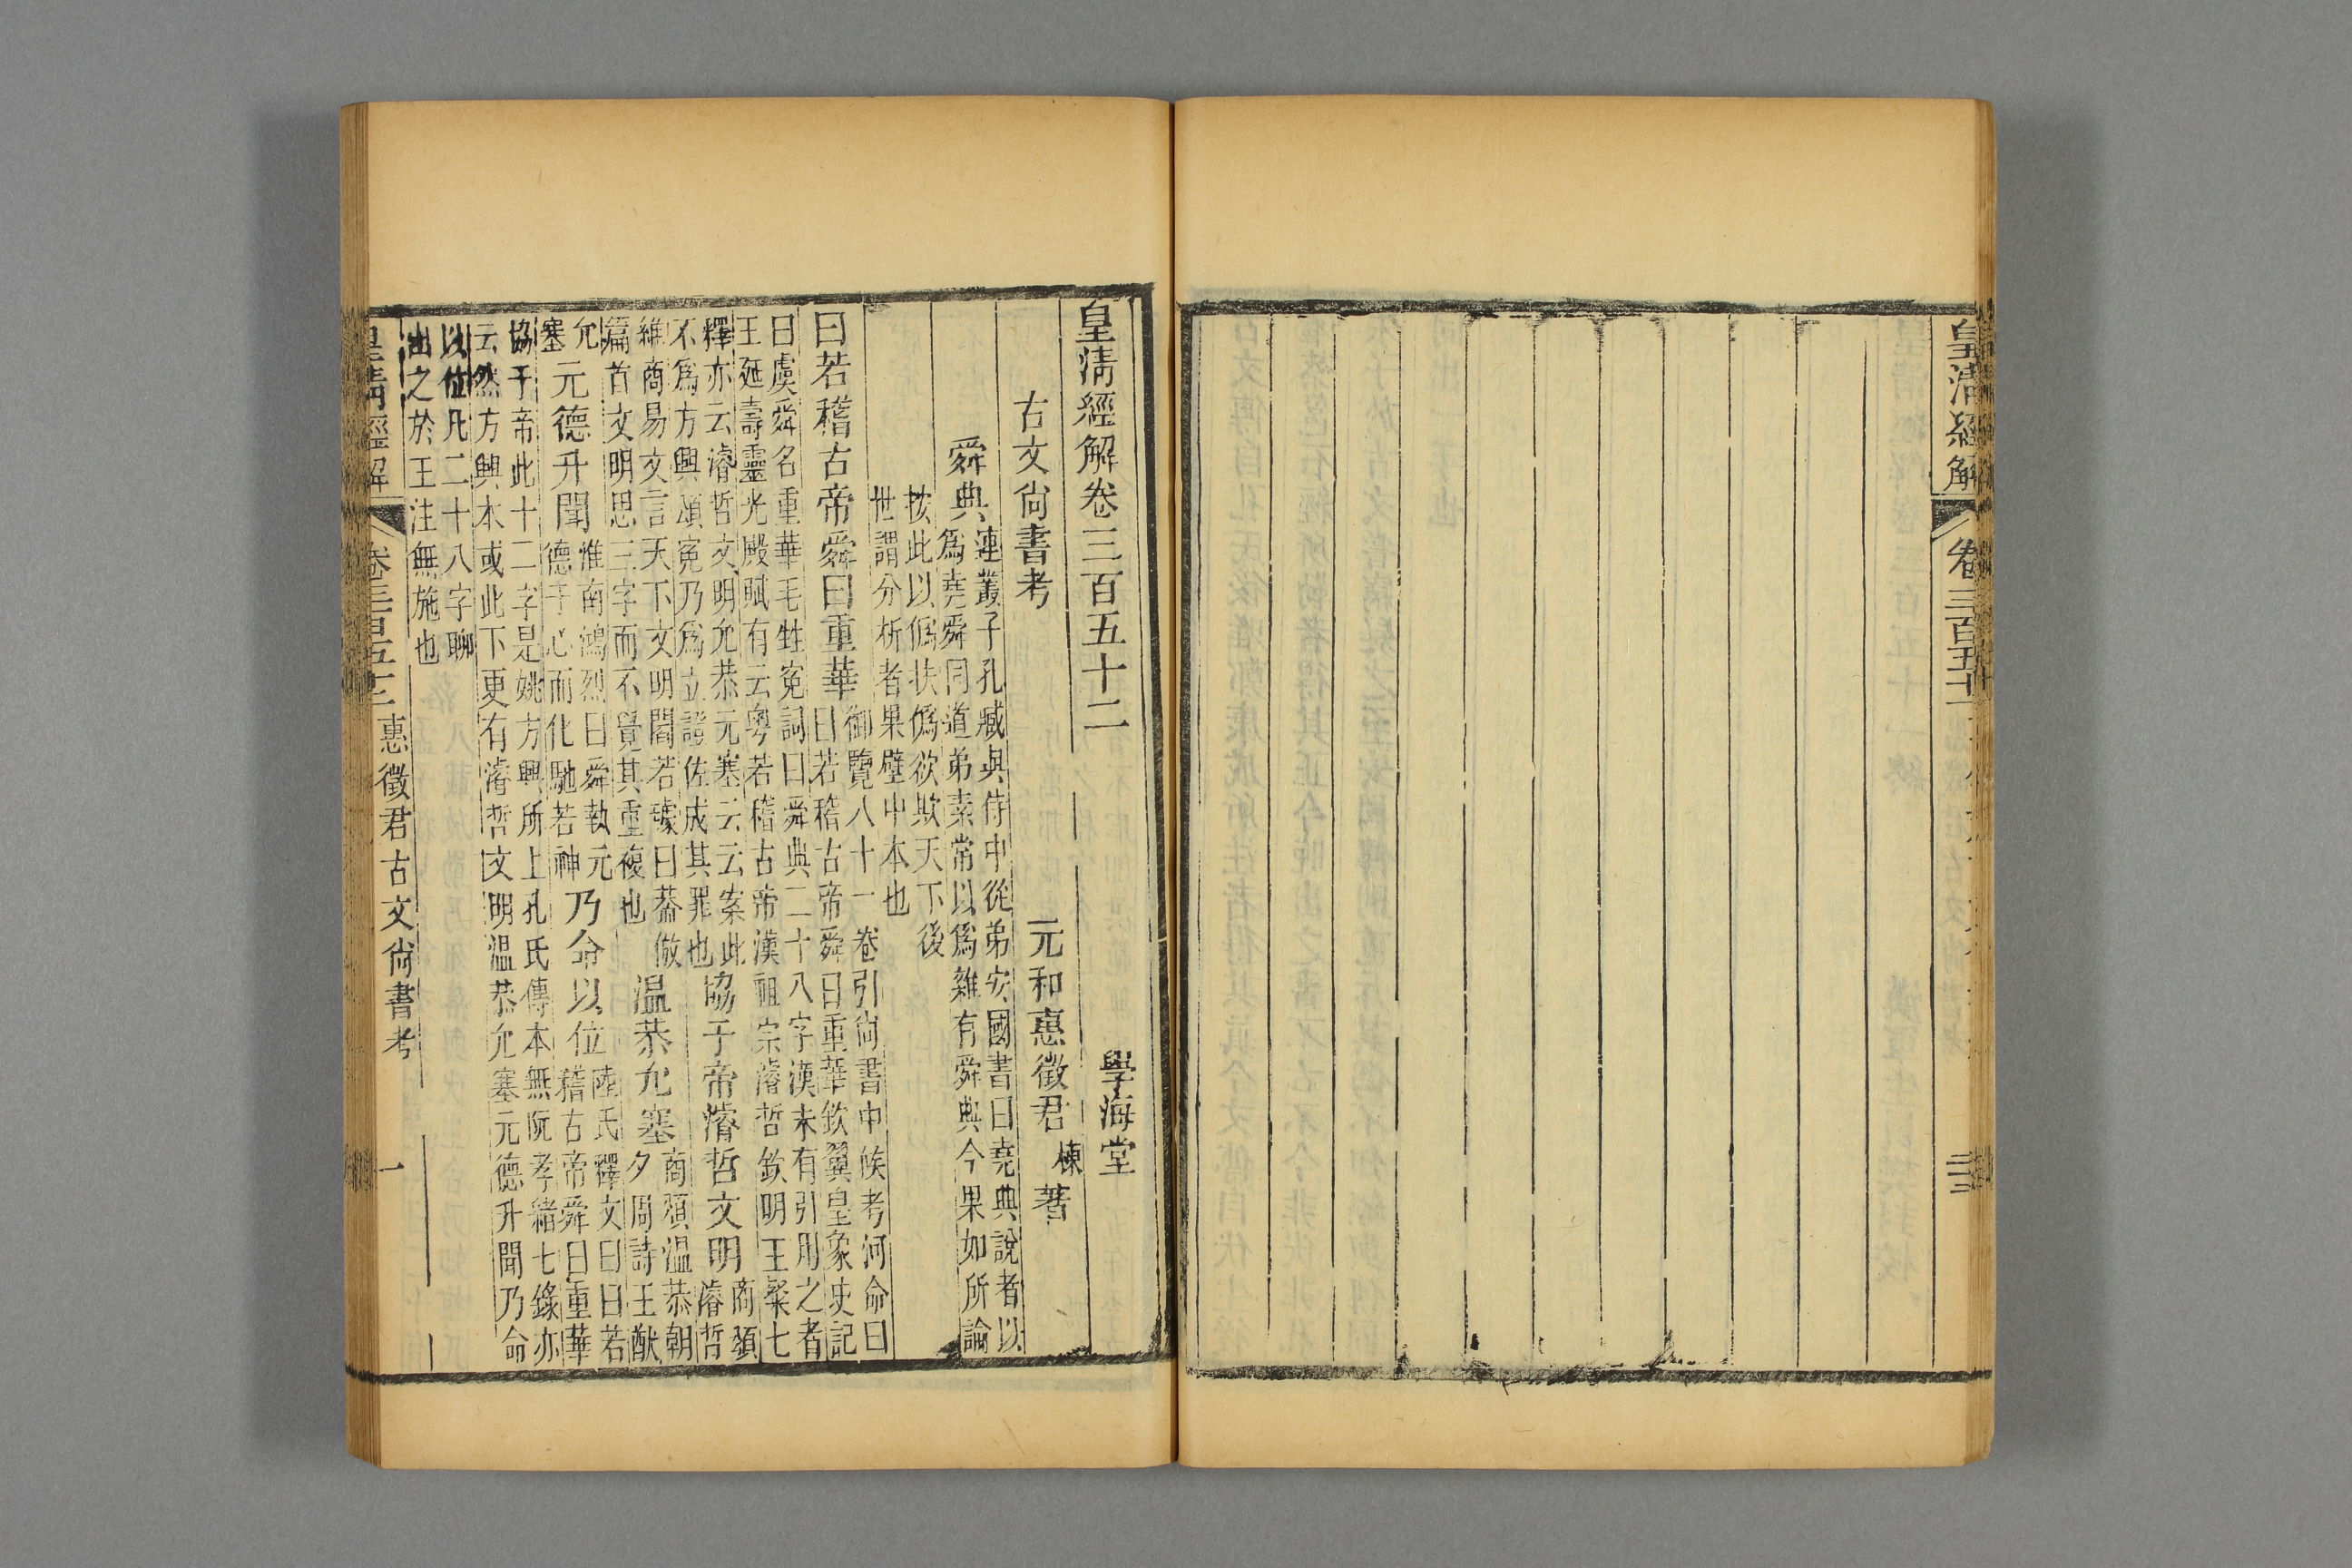 皇清經解
卷三百五十一
三三
皇清經解卷三百五十二
學海堂
古文尚書考
元和惠徵君棟著
舜典
連叢子孔臧與侍中從弟安國書曰堯典說者以
爲堯舜同道弟素常以爲雜有舜典今果如所論
按此以僞扶僞欲欺天下後
世謂分析者果壁中本也
曰若稽古帝舜曰重華
御覽八十一卷引尚書中候考河命曰
曰若稽古帝舜曰重華欽翼皇象史記
曰虞舜名重華毛甡寃詞曰舜典二十八字漢末有引用之者
王延壽靈光殿賦有云粤若稽古帝漢祖宗濬哲欽明王粲七
釋亦云濬哲文明允恭元塞云云案此
不爲方興頌寃乃爲立證佐成其罪也
協于帝濬哲文明
商頌
濬哲
維商易文言天下文明閻若璩曰蓋倣
篇首文明思三字而不覺其重複也
温恭允塞
商頌温恭朝
夕周詩王猷
允
塞
元德升聞
惟南鴻烈曰舜執元
德于心而化馳若神
乃命以位
陸氏釋文曰曰若
稽古帝舜曰重華
協于帝此十二字是姚方興所上孔氏傳本無阮孝緒七錄亦
云然方興本或此下更有濬哲文明温恭允塞元德升聞乃命
以位凡二十八字聊
出之於王注無施也
皇清經解
卷三百五十二
惠徵君古文尚書考
一